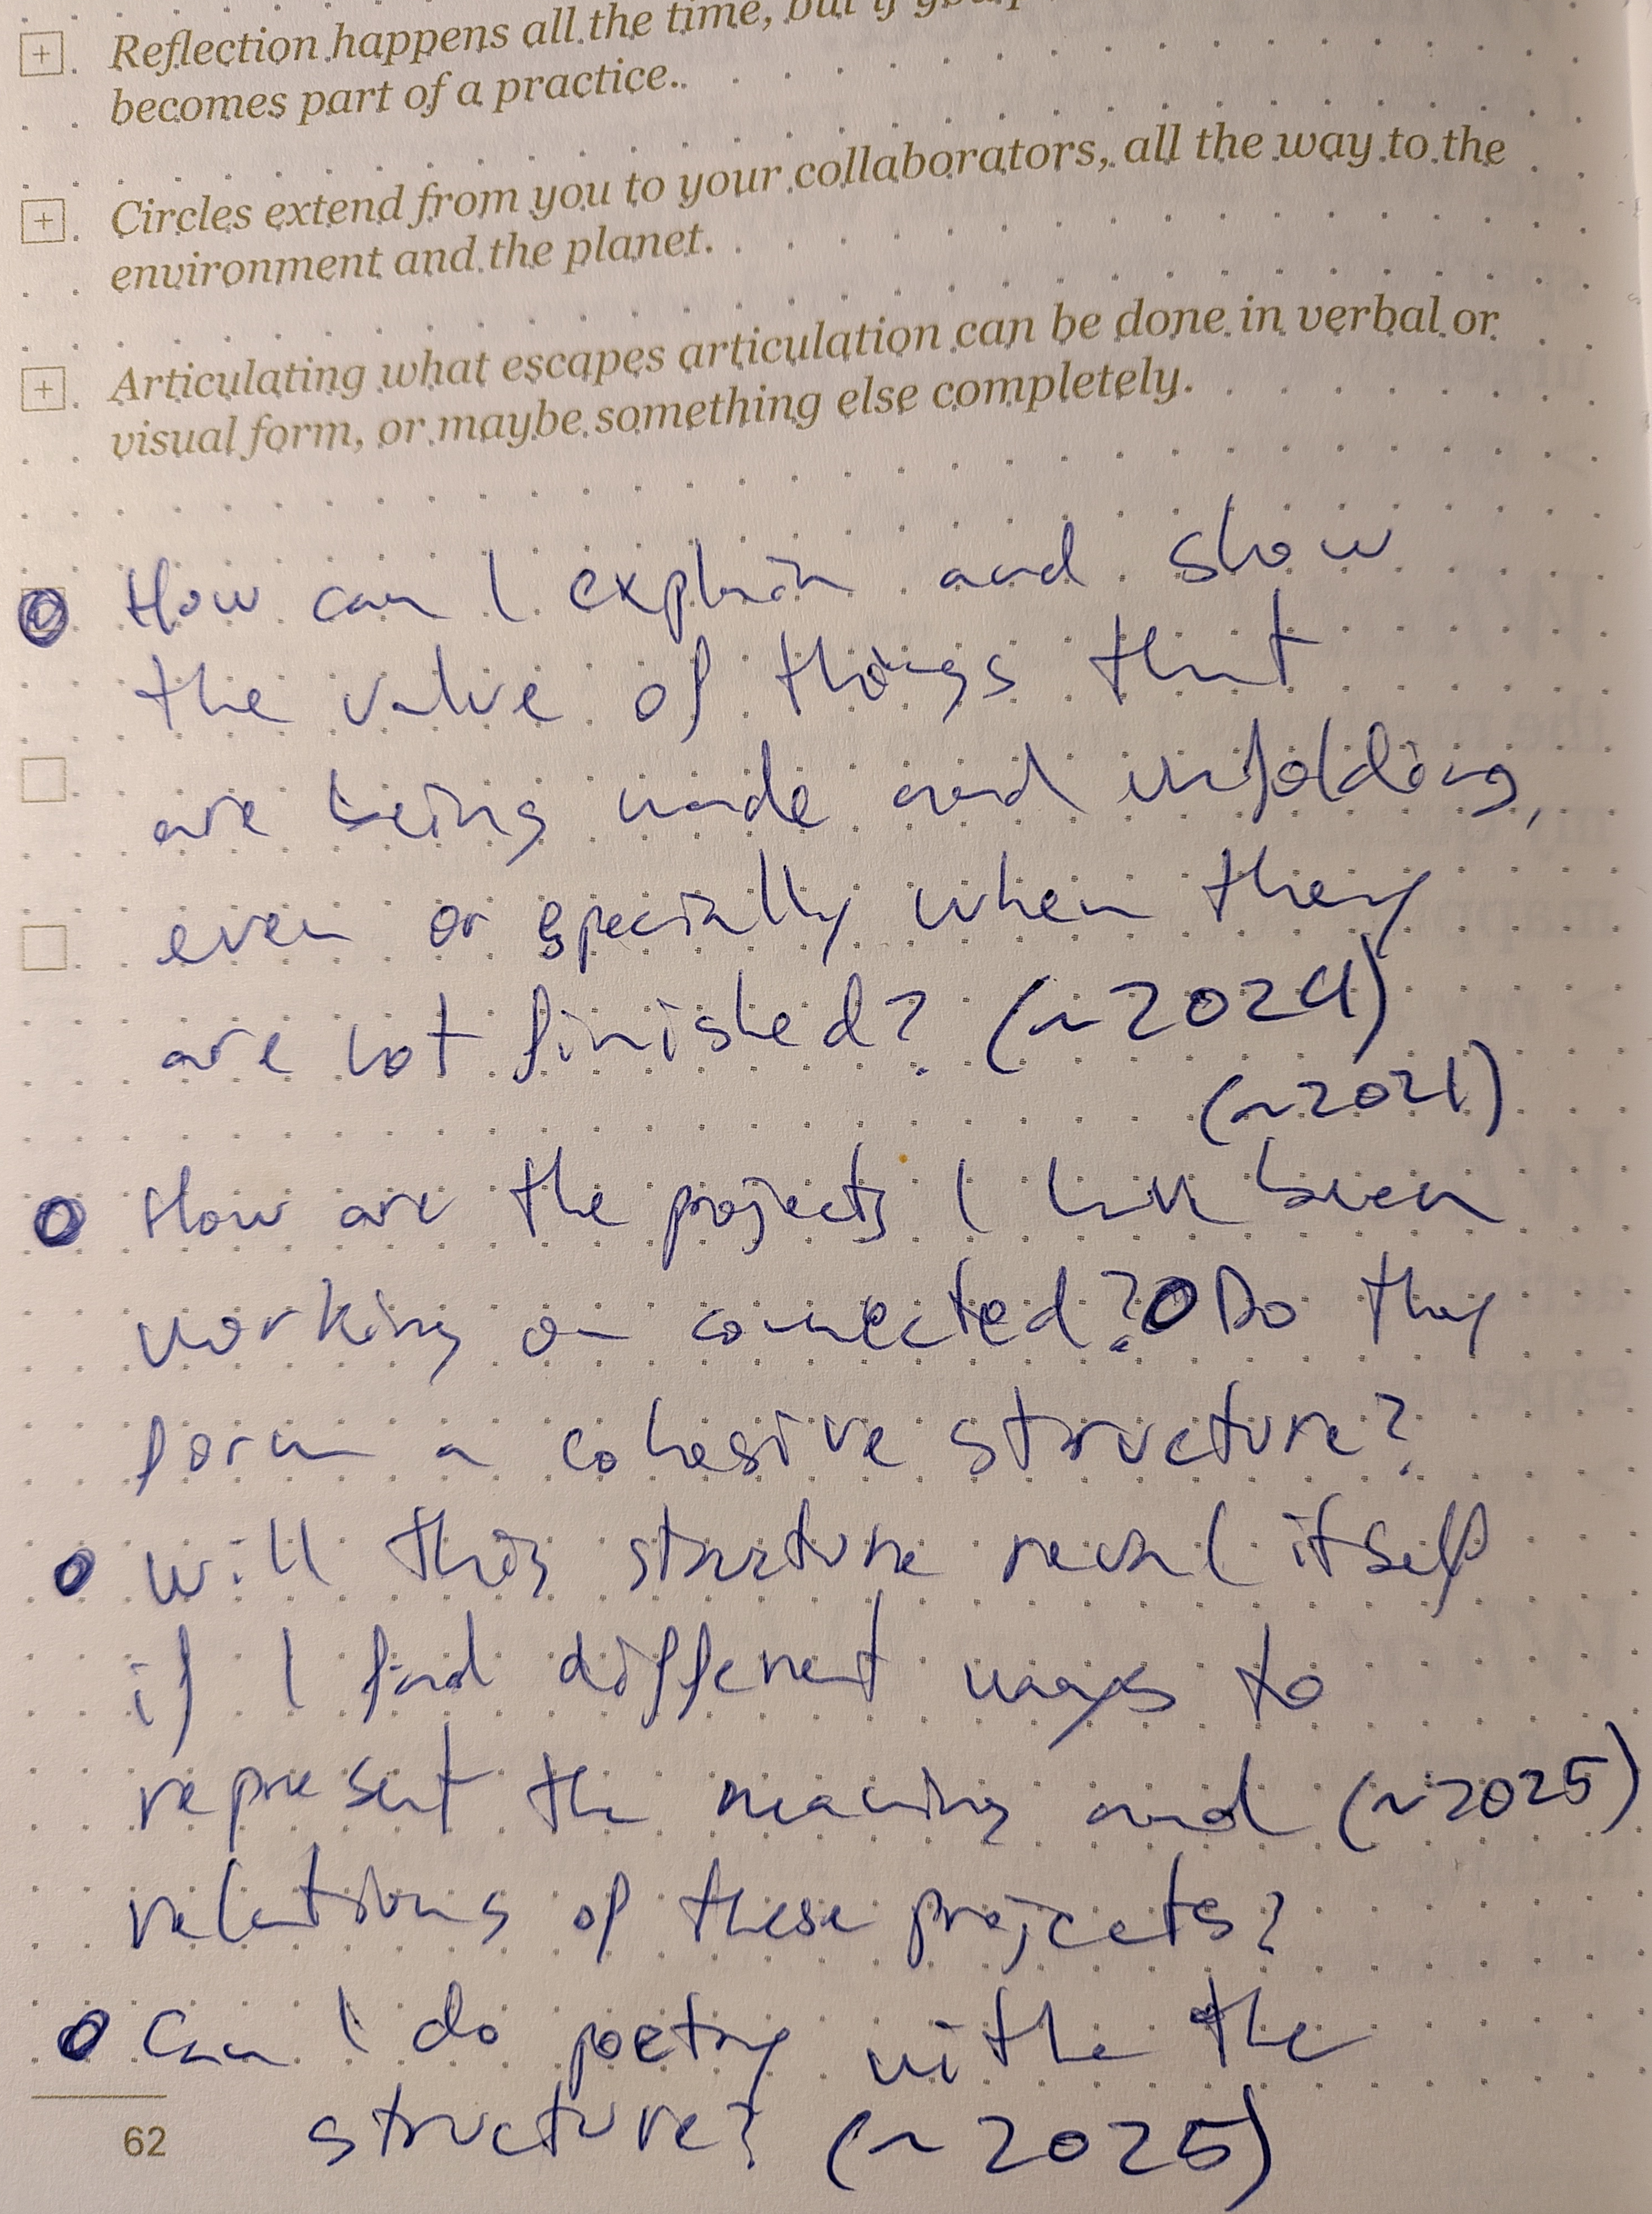 Reflection happens all the time, but if
becomes part of a practice.
Circles extend from you to your collaborators, all the way to the
environment and the planet.
Articulating what escapes articulation can be done in verbal or
visual form, or maybe something else completely.
How can I explain and show
the value of things that
are being made and unfolding,
even or specially when they
are not finished? (~2024)
(~2021)
How are the projects I have been
working on connected? Do they
form a cohesive structure?
Will this structure reveal itself
if I find different ways to
represent the meaning and (~2025)
relations of these projects?
Can I do poetry withe the
structure? (~2025)
62